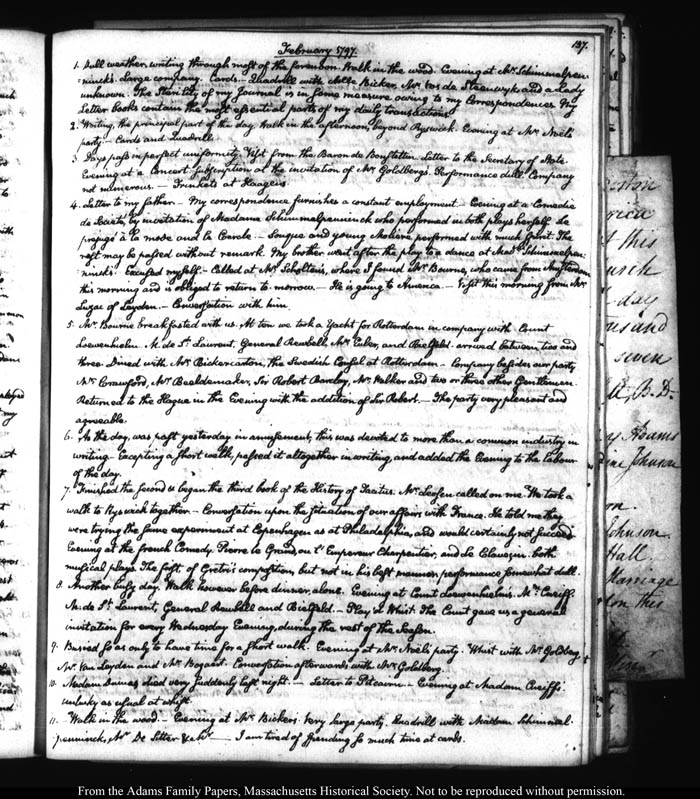 February 1797.
137.
1. Dull weather, writing through most of the forenoon. Walk in the wood. Evening at Mr. Schimmelpen-
ninck's. Large company. Cards. Quadrill with Mlle Bicker, Mr. Van de Steenwyk and a Lady
unknown. The Sterility of my Journal is in some measure owing to my Correspondences. My
Letter books contain the most essential parts of my daily transactions.
2. Writing, the principal part of the day. Walk in the afternoon, beyond Ryswick. Evening at Mr. Noël's
party. — Cards and Quadrill.
3. Days pass in perfect uniformity. Visit from the Baron de Bonstetten. Letter to the Secretary of State.
Evening at a Concert subscription at the invitation of Mr. Goldberg's. Performance dull. Company
not numerous. — Trinkets at Haagens.
4. Letter to my father. — My correspondence furnishes a constant employment. Evening at a Comedie
de Societé, by invitation of Madame Schimmelpenninck who performed in both plays herself. Le
prejugé à la mode and le Cercle. — and young Moliere performed with much spirit. The
rest may be passed without remark. My brother went after the play to a dance at Made. Schimmelpen-
ninck's. Excused myself. — Called at Mr. Scholten's, where I found Mr. Bourne, who came from Amsterdam
this morning and is obliged to return to-morrow. — He is going to America. — Visit this morning from Mr.
Luzac of Leyden. — Conversation with him.
5. Mr. Bourne breakfasted with us. At ten we took a Yacht for Rotterdam in company with Count
Loewenhielm. M. de St. Laurent, General Rewbell, Mr. and Bielfeld. arrived between two and
three. Dined with Mr. Bickerearton, the Swedish Consul at Rotterdam. — Company besides our party
Mr. Crawford, Mr. Beeldemaker, Sir Robert Barclay, Mr. Walker and two or three other Gentlemen.
Returned to the Hague in the Evening with the addition of Sir Robert. — The party very pleasant and
agreeable.
6. As the day, was past yesterday in amusement, this was devoted to more than a common industry in
writing. Excepting a short walk, passed it altogether in writing, and added the Evening to the labour
of the day.
7. Finished the second & began the third book of the History of Tacitus. Mr. called on me. We took a
walk to Ryswick together. — Conversation upon the situation of our affairs with France. He told me they
were trying the same experiment at Copenhagen as at Philadelphia, and would certainly not succeed.
Evening at the french Comedy. Pierre le Grand, ou l'Empereur Charpentier, and Le both
musical plays. The first, of Gretri's composition, but not in his best manner, performance somewhat dull.
8. Another busy day. Walk however before dinner, alone. Evening at Count Loewenhielm's. Mr. Cunissi
M. de St. Laurent, General Rewbell and Bielfeld. — Play'd Whist. The Count gave us a general
invitation for every Wednesday Evening, during the rest of the Season.
9. Busied so as only to have time for a short walk. Evening at Mr. Noël's party. Whist with Mr. Goldberg
Mr. Van Leyden and Mr. Bogaert. Conversation afterwards with Mr. Goldberg.
10. Madam died very suddenly last night. — Letter to Pitcairn — Evening at Madam
unlucky as usual at whist.
11. Walk in the wood. — Evening at Mr. Bicker's. Very large party. Quadrill with Madam Schimmel-
penninck, Mr. De Sitter & Mr. — I am tired of spending so much time at cards.
this
day
seven
Adams
Johnson
Johnson
Hall
Marriage
on this